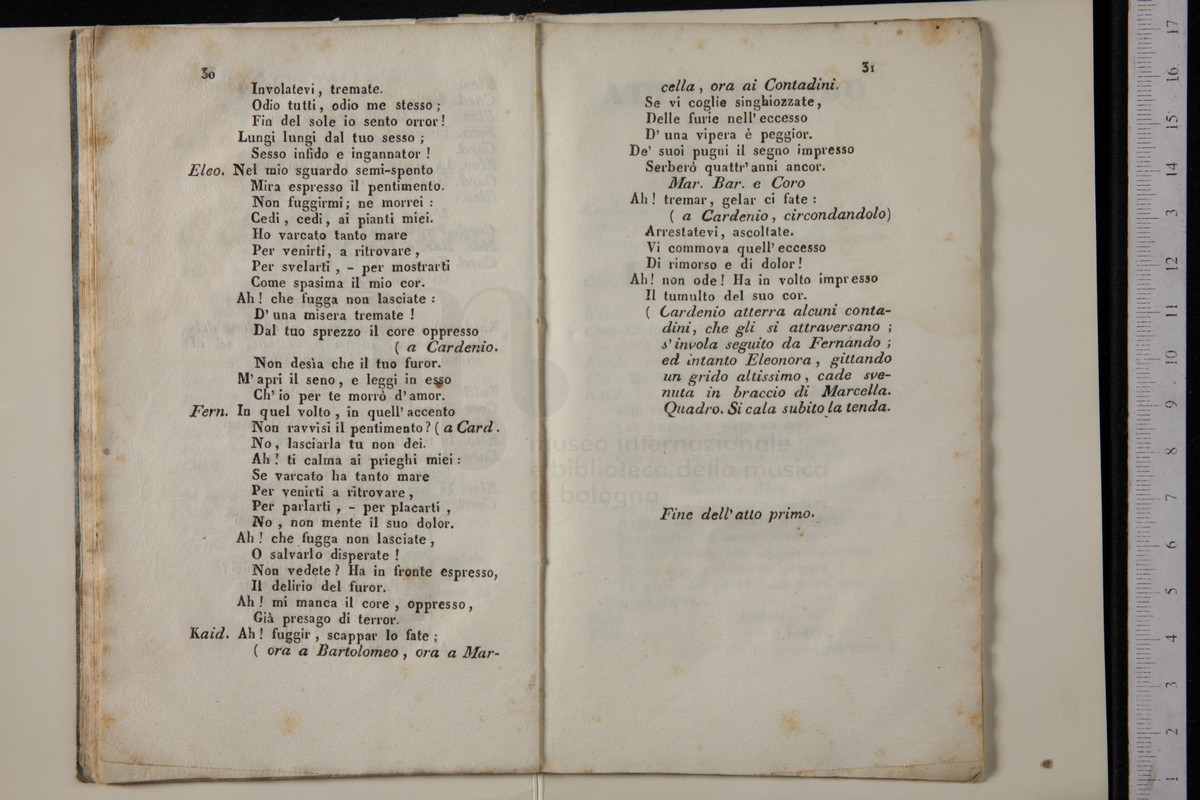 30
Involatevi, tremate.
Odio tutti, odio me stesso;
Fin del sole io sento orror!
Lungi lungi dal tuo sesso;
Sesso infido e ingannator!
Eleo. Nel mio sguardo semi-spento
Mira espresso il pentimento.
Non fuggirmi; ne morrei:
Cedi, cedi, ai pianti miei.
Ho varcato tanto mare
Per venirti, a ritrovare,
Per svelarti, - per mostrarti
Come spasima il mio cor.
Ah! che fugga non lasciate:
D' una misera tremate!
Dal tuo sprezzo il core oppresso
( a Cardenio.
Non desìa che il tuo furor.
M' apri il seno, e leggi in esso
Ch' io per te morrò d' amor.
Fern. In quel volto, in quell' accento
Non ravvisi il pentimento? ( a Card.
No, lasciarla tu non dei.
Ah! ti calma ai prieghi miei:
Se varcato ha tanto mare
Per venirti a ritrovare,
Per parlarti, - per placarti,
No, non mente il suo dolor.
Ah! che fugga non lasciate,
O salvarlo disperate!
Non vedete? Ha in fronte espresso,
Il delirio del furor.
Ah! mi manca il core, oppresso,
Già presago di terror.
Kaid. Ah! fuggir, scappar lo fate;
( ora a Bartolomeo, ora a Mar-
31
cella, ora ai Contadini.
Se vi coglie singhiozzate,
Delle furie nell' eccesso
D' una vipera è peggior.
De' suoi pugni il segno impresso
Serberò quattr' anni ancor.
Mar. Bar. e Coro
Ah! tremar, gelar ci fate:
( a Cardenio, circondandolo)
Arrestatevi, ascoltate.
Vi commova quell' eccesso
Di rimorso e di dolor!
Ah! non ode! Ha in volto impresso
Il tumulto del suo cor.
( Cardenio atterra alcuni conta-
dini, che gli si attraversano;
s' invola seguito da Fernando;
ed intanto Eleonora, gittando
un grido altissimo, cade sve-
nuta in braccio di Marcella.
Quadro. Si cala subito la tenda.
Fine dell' atto primo.
museo internazionale
e biblioteca della musica
di bologna
1 2 3 4 5 6 7 8 9 10 11 12 13 14 15 16 17